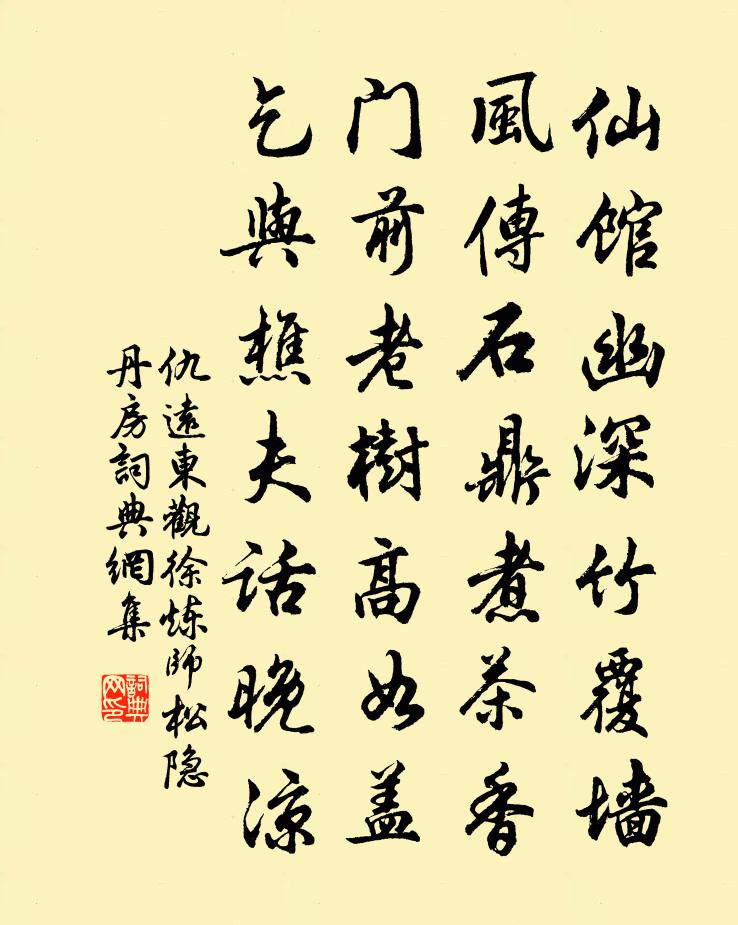 仙馆幽深竹覆墙
風傳石鼎煮茶香
门前老樹高如盖
乞與樵夫话晚凉
仇遠東觀徐炼師松隐
丹房詞典網集
詞典网印